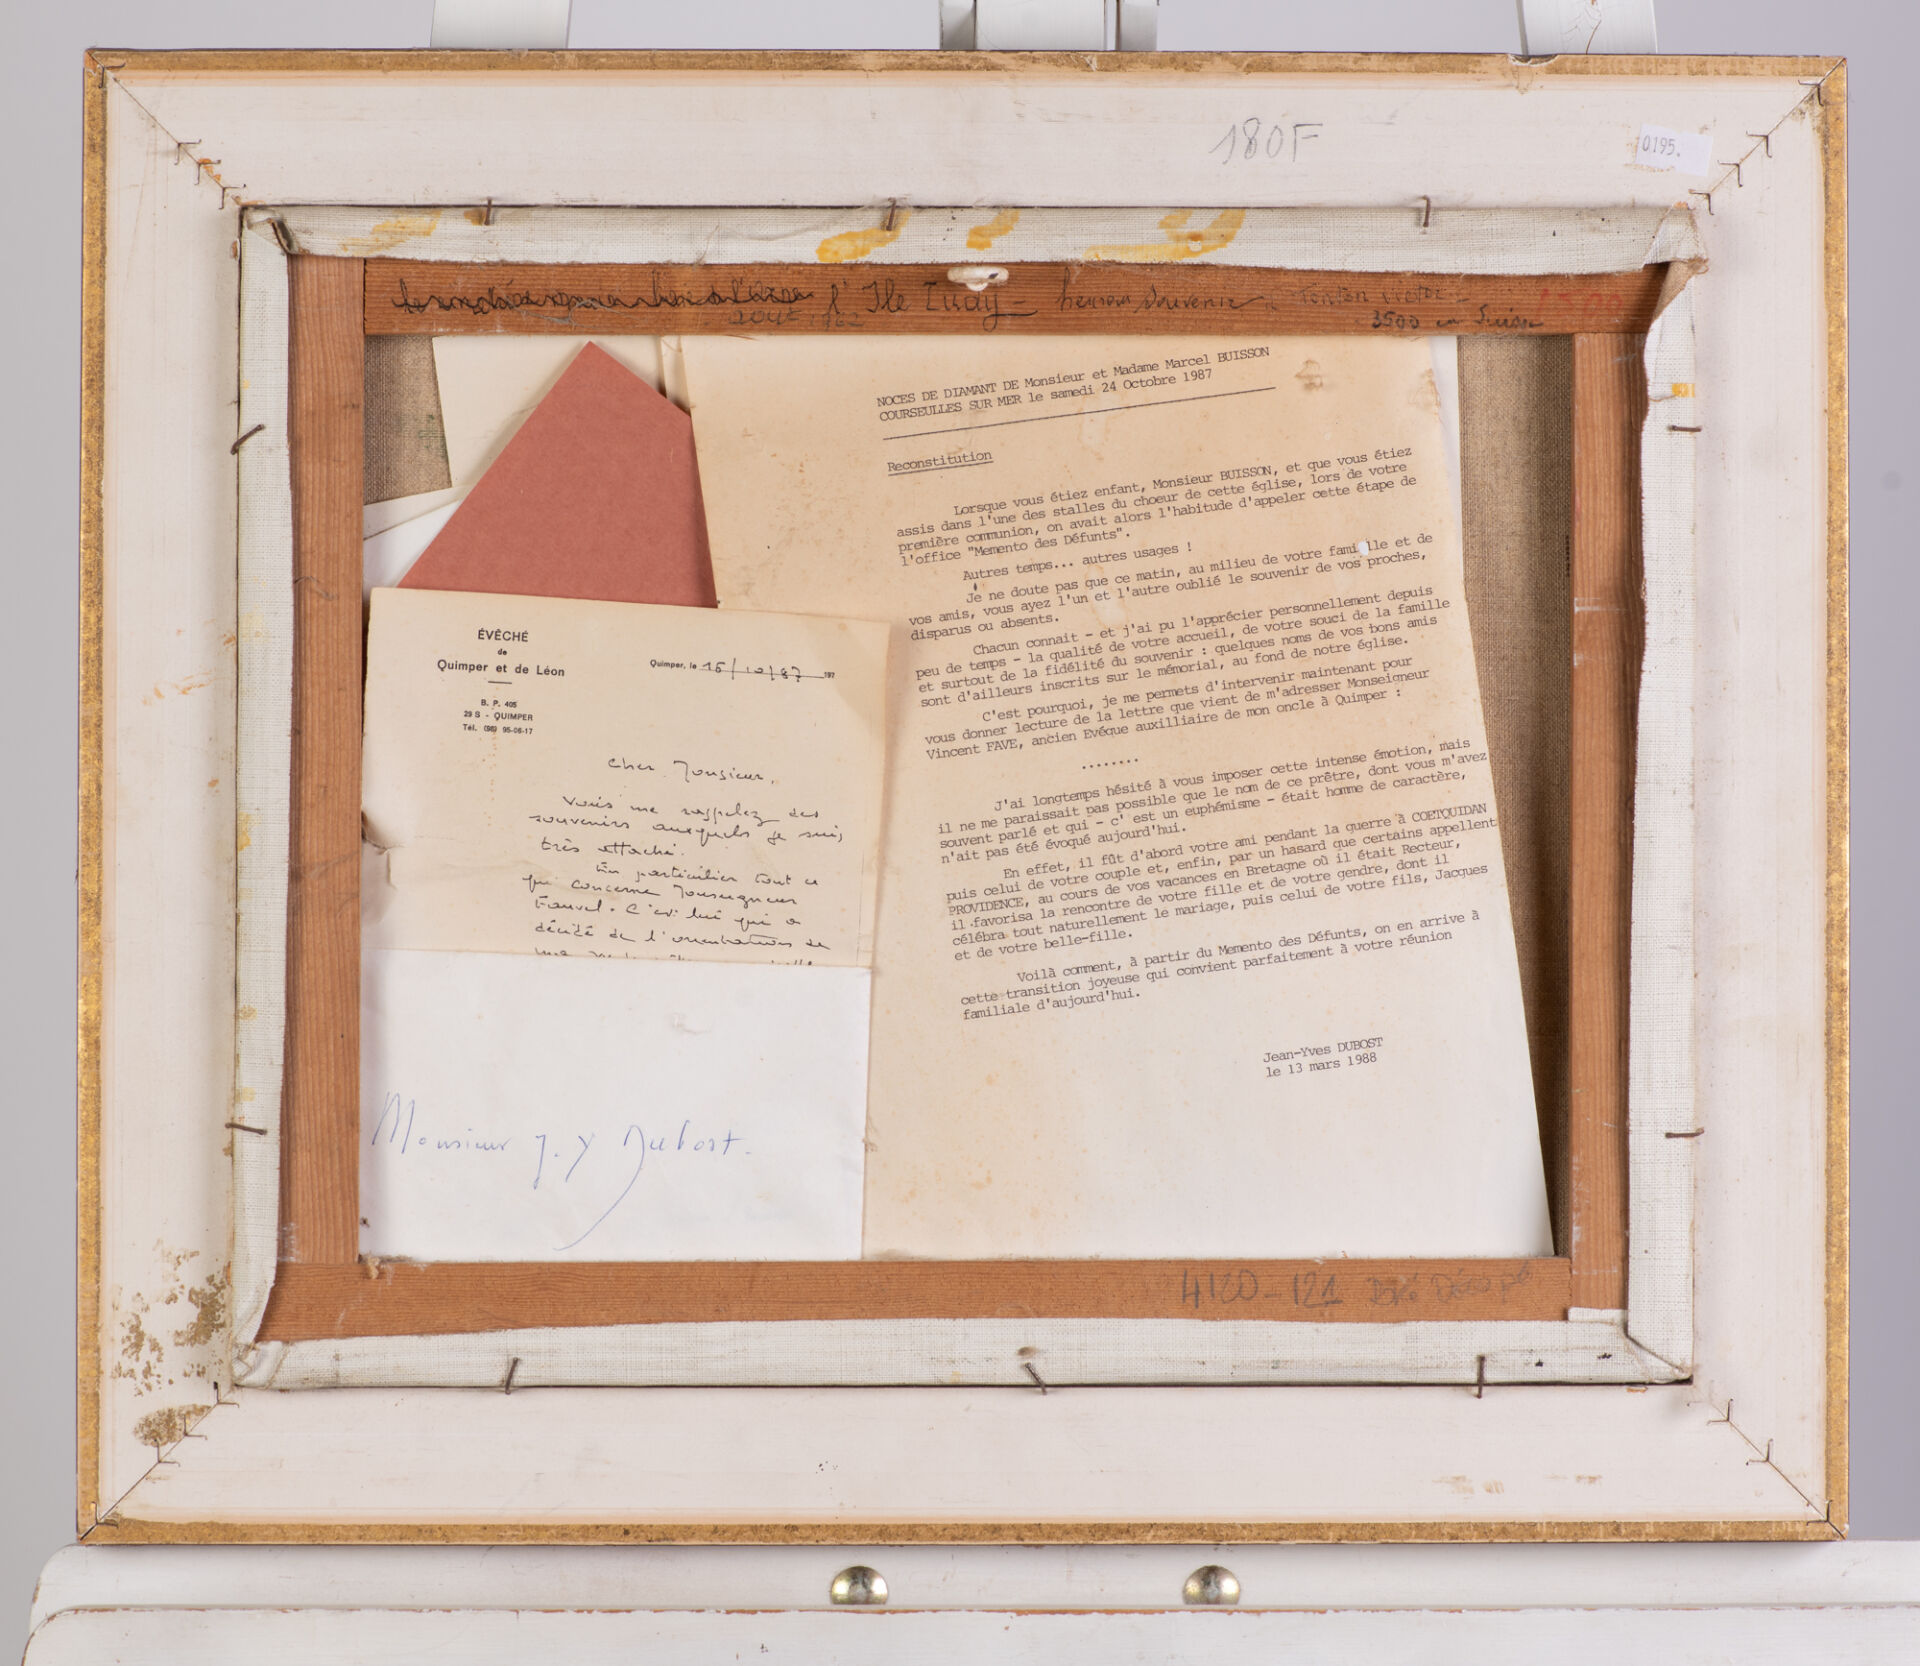 180F
0195.
l'Ile Tudy - heureux souvenir Tonton
août 1962
3500 en Suisse
NOCES DE DIAMANT DE Monsieur et Madame Marcel BUISSON
COURSEULLES SUR MER le samedi 24 Octobre 1987
Reconstitution
Lorsque vous étiez enfant, Monsieur BUISSON, et que vous étiez
assis dans l'une des stalles du choeur de cette église, lors de votre
première communion, on avait alors l'habitude d'appeler cette étape de
l'office "Memento des Défunts".
Autres temps... autres usages !
Je ne doute pas que ce matin, au milieu de votre famille et de
vos amis, vous ayez l'un et l'autre oublié le souvenir de vos proches,
disparus ou absents.
Chacun connait - et j'ai pu l'apprécier personnellement depuis
peu de temps - la qualité de votre accueil, de votre souci de la famille
et surtout de la fidélité du souvenir : quelques noms de vos bons amis
sont d'ailleurs inscrits sur le mémorial, au fond de notre église.
C'est pourquoi, je me permets d'intervenir maintenant pour
vous donner lecture de la lettre que vient de m'adresser Monseigneur
Vincent FAVE, ancien Evéque auxilliaire de mon oncle à Quimper :
........
J'ai longtemps hésité à vous imposer cette intense émotion, mais
il ne me paraissait pas possible que le nom de ce prêtre, dont vous m'avez
souvent parlé et qui - c' est un euphémisme - était homme de caractère,
n'ait pas été évoqué aujourd'hui.
En effet, il fût d'abord votre ami pendant la guerre à COETQUIDAN
puis celui de votre couple et, enfin, par un hasard que certains appellent
PROVIDENCE, au cours de vos vacances en Bretagne où il était Recteur,
il favorisa la rencontre de votre fille et de votre gendre, dont il
célébra tout naturellement le mariage, puis celui de votre fils, Jacques
et de votre belle-fille.
Voilà comment, à partir du Memento des Défunts, on en arrive à
cette transition joyeuse qui convient parfaitement à votre réunion
familiale d'aujourd'hui.
Jean-Yves DUBOST
le 13 mars 1988
ÉVÊCHÉ
de
Quimper et de Léon
B. P. 405
29 S - QUIMPER
Tél. (98) 95-06-17
Quimper, le 15/10/87 197
Cher Monsieur,
Vous me rappelez des
souvenirs auxquels je suis
très attaché.
En particulier tout ce
qui concerne Monseigneur
Fauvel. C'est lui qui a
décidé de l'orientation de
Monsieur J. Y Dubost.
4120-121